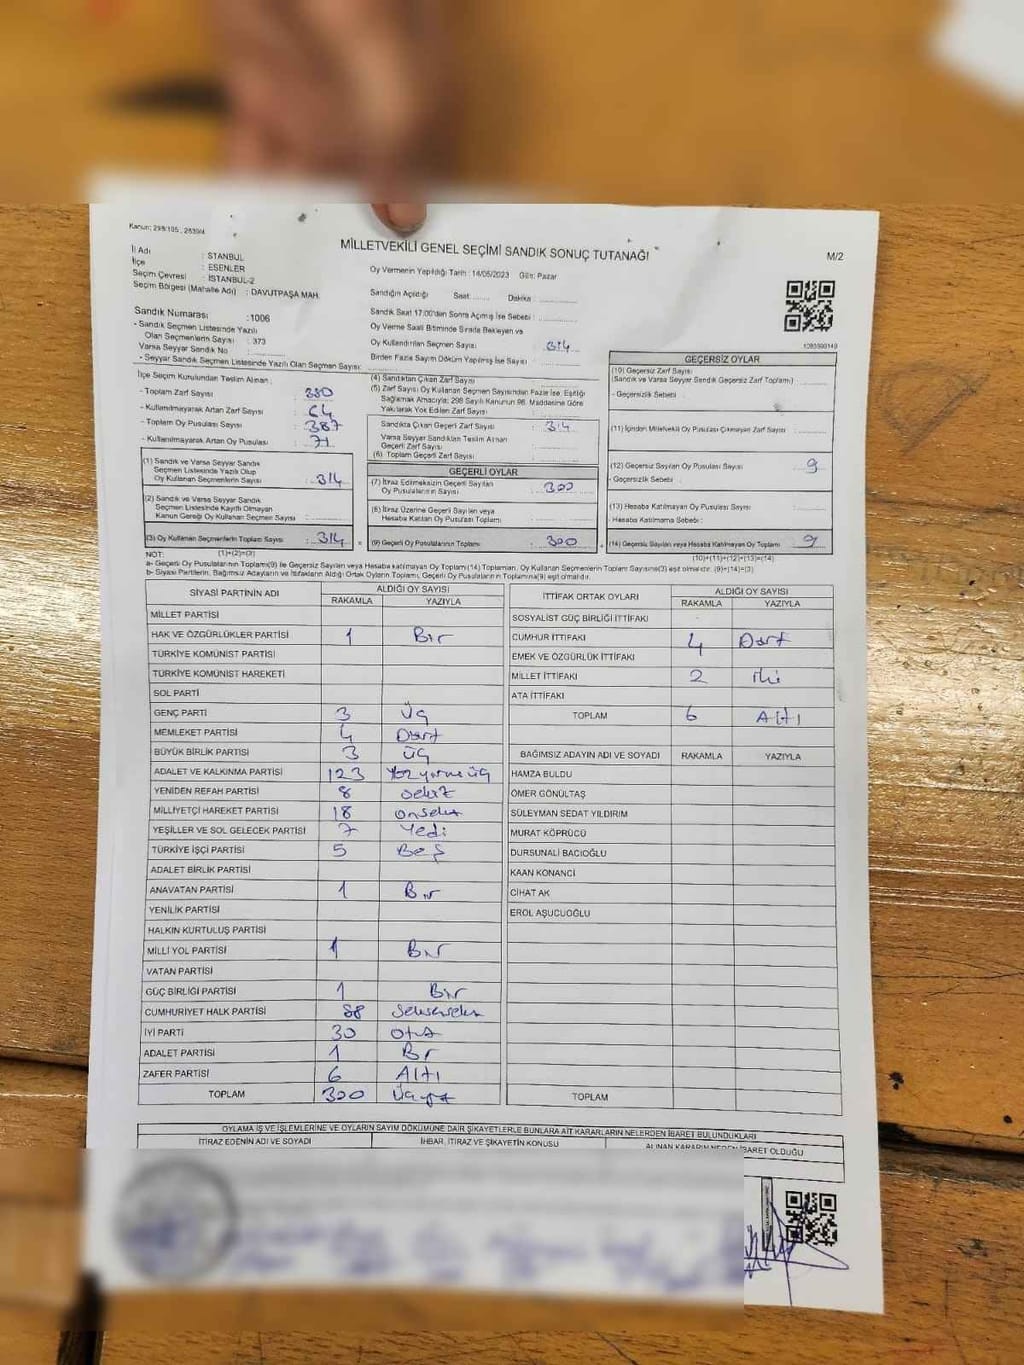 Kanun: 298/105, 2839/4
MİLLETVEKİLİ GENEL SEÇİMİ SANDIK SONUÇ TUTANAĞI
M/2
İl Adı : İSTANBUL
İlçe : ESENLER
Seçim Çevresi : İSTANBUL-2
Seçim Bölgesi (Mahalle Adı) : DAVUTPAŞA MAH.
Sandık Numarası : 1006
- Sandık Seçmen Listesinde Yazılı
Olan Seçmenlerin Sayısı : 373
Varsa Seyyar Sandık No :
- Seyyar Sandık Seçmen Listesinde Yazılı Olan Seçmen Sayısı:
Oy Vermenin Yapıldığı Tarih : 14/05/2023 Gün: Pazar
Sandığın Açıldığı Saat: Dakika
Sandık Saat 17:00'den Sonra Açılmış İse Sebebi :
Oy Verme Saati Bitiminde Sırada Bekleyen ve
Oy Kullandırılan Seçmen Sayısı : 314
Birden Fazla Sayım Döküm Yapılmış İse Sayısı :
İlçe Seçim Kurulundan Teslim Alınan :
- Toplam Zarf Sayısı : 380
- Kullanılmayarak Artan Zarf Sayısı : 64
- Toplam Oy Pusulası Sayısı : 387
- Kullanılmayarak Artan Oy Pusulası : 71
(1) Sandık ve Varsa Seyyar Sandık
Seçmen Listesinde Yazılı Olup
Oy Kullanan Seçmenlerin Sayısı : 314
(2) Sandık ve Varsa Seyyar Sandık
Seçmen Listesinde Kayıtlı Olmayan
Kanun Gereği Oy Kullanan Seçmen Sayısı :
(3) Oy Kullanan Seçmenlerin Toplam Sayısı : 314
(4) Sandıktan Çıkan Zarf Sayısı
(5) Zarf Sayısı Oy Kullanan Seçmen Sayısından Fazla İse, Eşitliği
Sağlamak Amacıyla; 298 Sayılı Kanunun 98. Maddesine Göre
Yakılarak Yok Edilen Zarf Sayısı :
Sandıkta Çıkan Geçerli Zarf Sayısı : 314
Varsa Seyyar Sandıktan Teslim Alınan
Geçerli Zarf Sayısı :
(6) Toplam Geçerli Zarf Sayısı :
GEÇERLİ OYLAR
(7) İtiraz Edilmeksizin Geçerli Sayılan
Oy Pusulalarının Sayısı : 300
(8) İtiraz Üzerine Geçerli Sayılan veya
Hesaba Katılan Oy Pusulası Toplamı :
(9) Geçerli Oy Pusulalarının Toplamı : 300
1083590149
GEÇERSİZ OYLAR
(10) Geçersiz Zarf Sayısı
(Sandık ve Varsa Seyyar Sandık Geçersiz Zarf Toplamı) :
- Geçersizlik Sebebi :
(11) İçinden Milletvekili Oy Pusulası Çıkmayan Zarf Sayısı :
(12) Geçersiz Sayılan Oy Pusulası Sayısı : 9
- Geçersizlik Sebebi :
(13) Hesaba Katılmayan Oy Pusulası Sayısı :
- Hesaba Katılmama Sebebi :
(14) Geçersiz Sayılan veya Hesaba Katılmayan Oy Toplamı : 9
NOT: (1)+(2)=(3) (10)+(11)+(12)+(13)=(14)
a- Geçerli Oy Pusulalarının Toplamı(9) ile Geçersiz Sayılan veya Hesaba katılmayan Oy Toplamı(14) Toplamları, Oy Kullanan Seçmenlerin Toplam Sayısına(3) eşit olmalıdır. (9)+(14)=(3)
b- Siyasi Partilerin, Bağımsız Adayların ve İttifakların Aldığı Ortak Oyların Toplamı, Geçerli Oy Pusulalarının Toplamına(9) eşit olmalıdır.
SİYASİ PARTİNİN ADI ALDIĞI OY SAYISI
RAKAMLA YAZIYLA
MİLLET PARTİSİ
HAK VE ÖZGÜRLÜKLER PARTİSİ 1 Bir
TÜRKİYE KOMÜNİST PARTİSİ
TÜRKİYE KOMÜNİST HAREKETİ
SOL PARTİ
GENÇ PARTİ 3 Üç
MEMLEKET PARTİSİ 4 Dört
BÜYÜK BİRLİK PARTİSİ 3 üç
ADALET VE KALKINMA PARTİSİ 123 Yüzyirmiüç
YENİDEN REFAH PARTİSİ 8 sekiz
MİLLİYETÇİ HAREKET PARTİSİ 18 onsekiz
YEŞİLLER VE SOL GELECEK PARTİSİ 7 Yedi
TÜRKİYE İŞÇİ PARTİSİ 5 Beş
ADALET BİRLİK PARTİSİ
ANAVATAN PARTİSİ 1 Bir
YENİLİK PARTİSİ
HALKIN KURTULUŞ PARTİSİ
MİLLİ YOL PARTİSİ 1 Bir
VATAN PARTİSİ
GÜÇ BİRLİĞİ PARTİSİ 1 Bir
CUMHURİYET HALK PARTİSİ 88 Seksensekiz
İYİ PARTİ 30 Otuz
ADALET PARTİSİ 1 Bir
ZAFER PARTİSİ 6 Altı
TOPLAM 300 Üçyüz
İTTİFAK ORTAK OYLARI ALDIĞI OY SAYISI
RAKAMLA YAZIYLA
SOSYALİST GÜÇ BİRLİĞİ İTTİFAKI
CUMHUR İTTİFAKI 4 Dört
EMEK VE ÖZGÜRLÜK İTTİFAKI
MİLLET İTTİFAKI 2 iki
ATA İTTİFAKI
TOPLAM 6 Altı
BAĞIMSIZ ADAYIN ADI VE SOYADI RAKAMLA YAZIYLA
HAMZA BULDU
ÖMER GÖNÜLTAŞ
SÜLEYMAN SEDAT YILDIRIM
MURAT KÖPRÜCÜ
DURSUNALİ BACIOĞLU
KAAN KONANCİ
CİHAT AK
EROL AŞUCUOĞLU
TOPLAM
OYLAMA İŞ VE İŞLEMLERİNE VE OYLARIN SAYIM DÖKÜMÜNE DAİR ŞİKAYETLERLE BUNLARA AİT KARARLARIN NELERDEN İBARET BULUNDUKLARI
İTİRAZ EDENİN ADI VE SOYADI İHBAR, İTİRAZ VE ŞİKAYETİN KONUSU ALINAN KARARIN NEDEN İBARET OLDUĞU